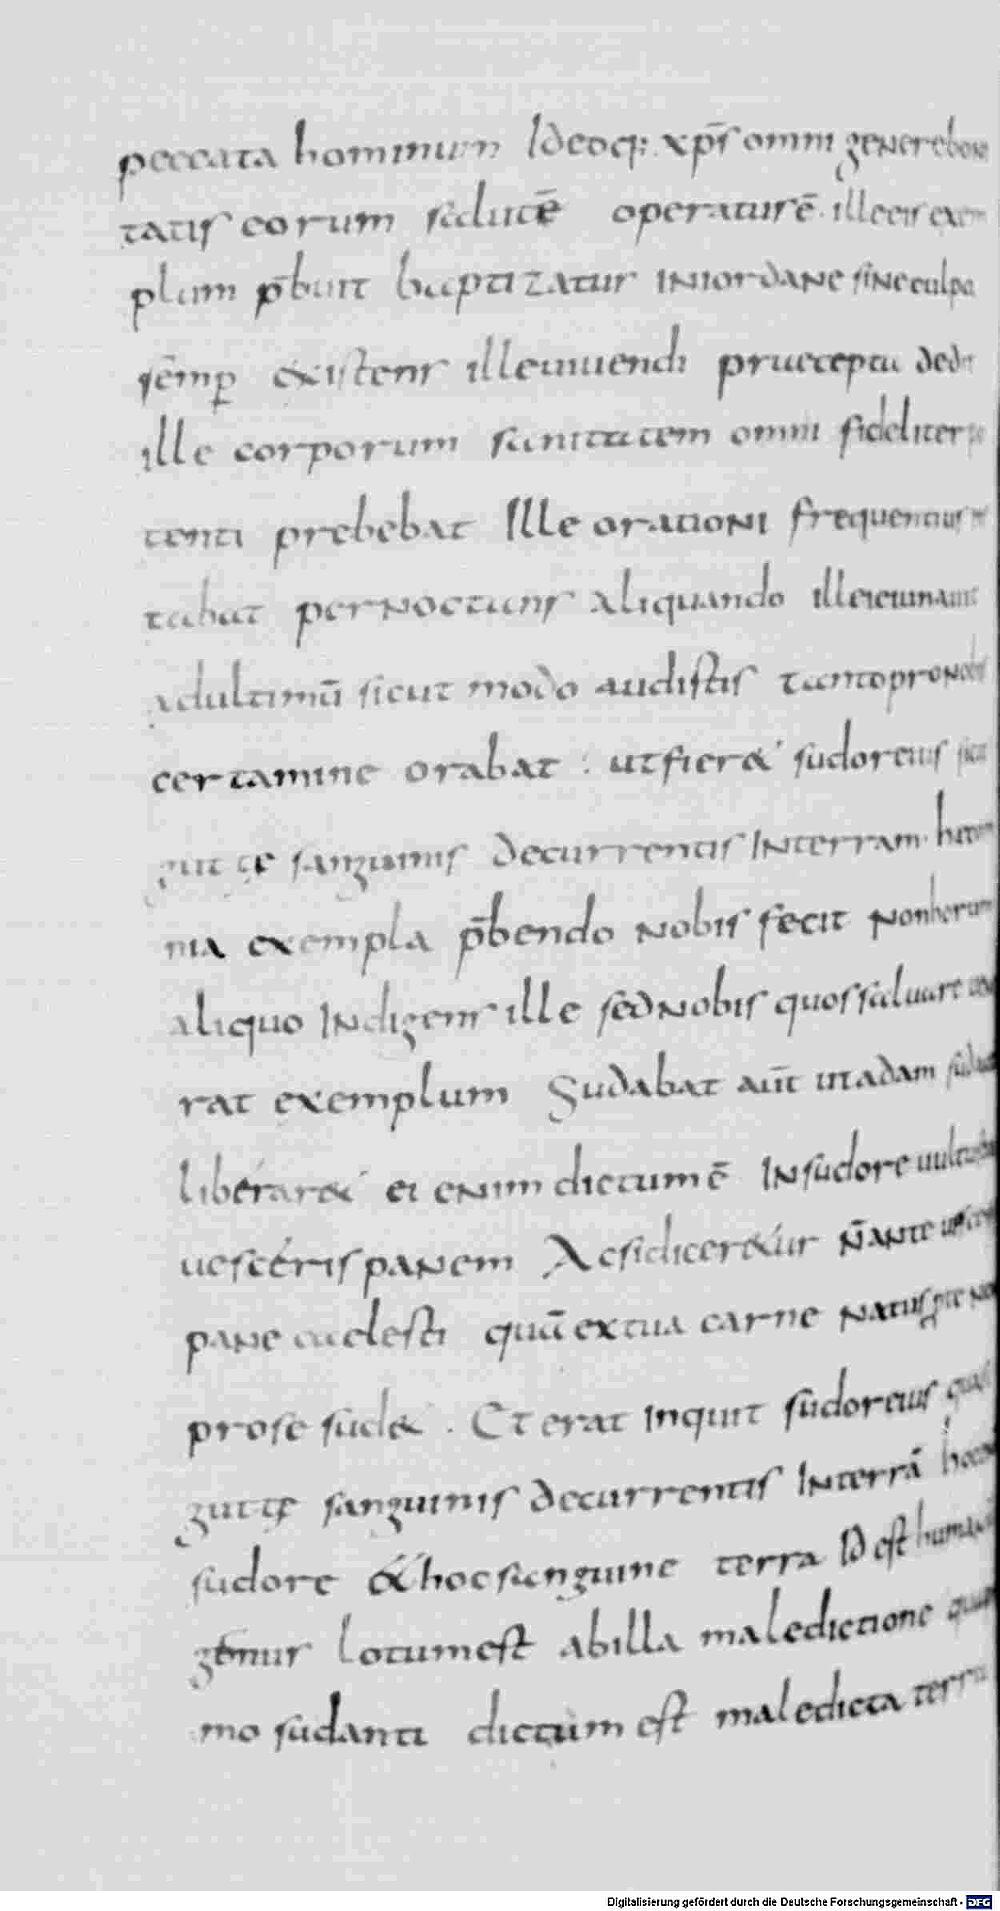 peccata hominum Ideoq; xp̄s omni genere boni
tatis eorum salutē operatus ē. ille eis exem
plum p̄buit baptizatur in iordane sine culpa
sēmp existens ille uiuendi praecepta dedit
ille corporum sanitatem omni fideliter pe
tenti prebebat Ille orationi frequentius
tabat pernoctans aliquando ille ieiunauit
adultimū sicut modo audistis tanto pro nobis
certamine orabat : ut fieret sudor eius sicut
guttę sanguinis decurrentis in terram. haec om
nia exempla p̄bendo nobis fecit non horum
aliquo indigens ille sed nobis quos saluare
rat exemplum Sudabat aūt ut adam
liberaret ei enim dictum ē In sudore uultus
uesceris panem Ac si diceretur n̄ ante
pane caelesti quā ex tua carne natus
pro se sudet. Et erat inquit sudor eius quasi
guttę sanguinis decurrentis in terrā hoc
sudore et hoc sanguine terra id est humanū
genus lotum est ab illa maledictione
mo sudanti dictum est maledicta terra